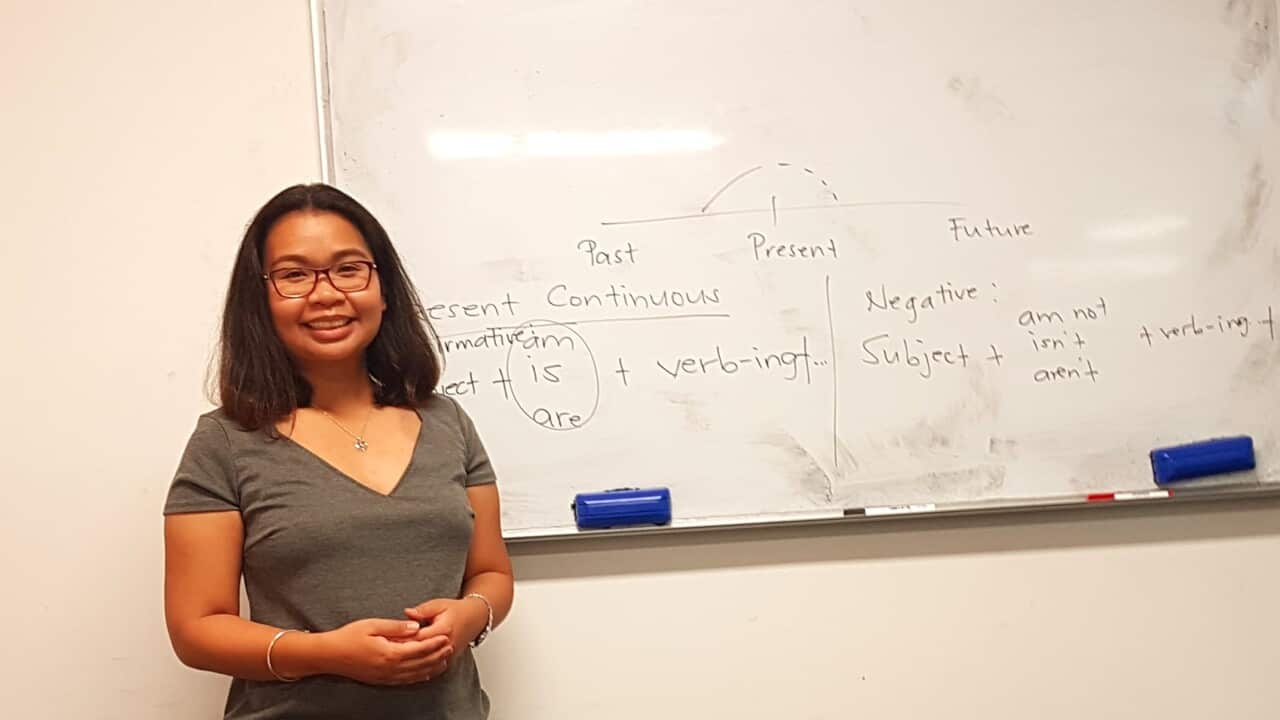 Past Present Future
esent Continuous
rmative:
ject + am
is
are
+ verb-ing + ...
Negative:
Subject + am not
isn't
aren't
+ verb-ing +